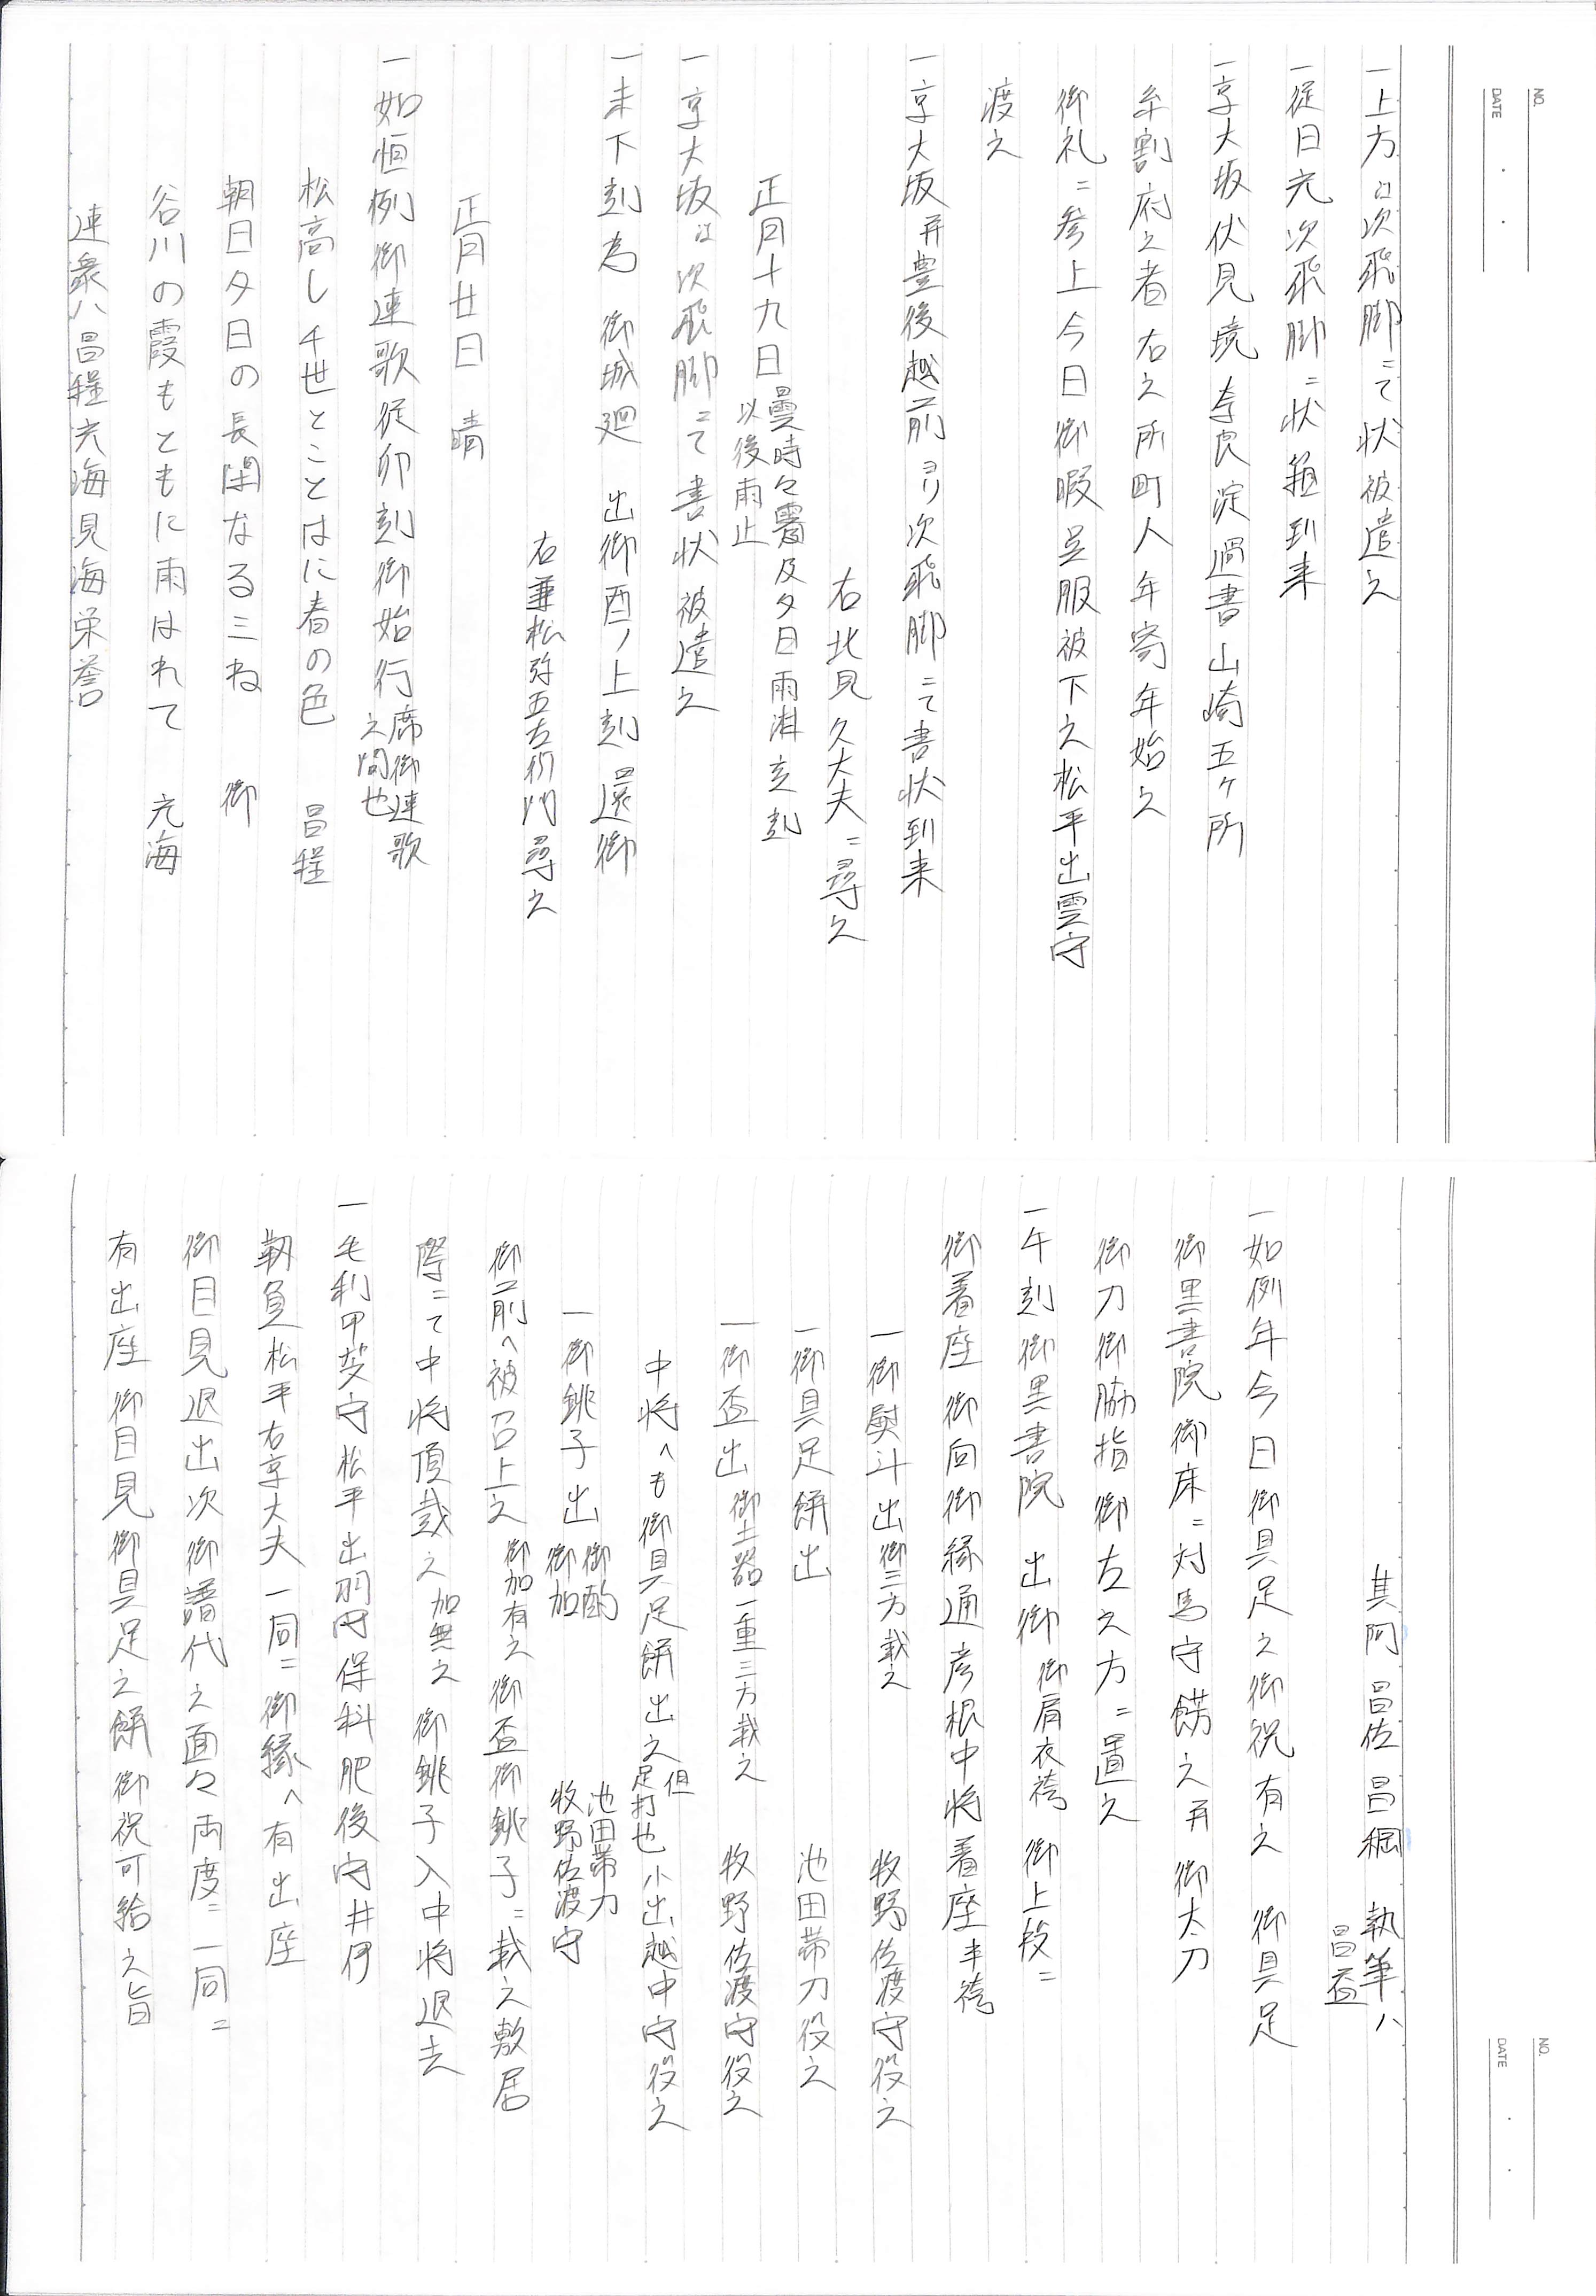 NO.
DATE
一上方江次飛脚ニて状被遣之
一従日光次飛脚ニ状箱到来
一京大坂伏見境奈良淀過書山崎五ケ所
糸割府之者右之所町人年寄年始之
御礼ニ参上今日御暇呈服被下之松平出雲守
渡之
一京大坂并豊後越前ヨリ次飛脚ニて書状到来
右北見久大夫ニ尋之
正月十九日 曇時々霰及夕日雨淋玄刻
以後雨止
一京大坂江次飛脚ニて書状被遣之
一未下刻為 御城廻 出御酉ノ上刻還御
右兼松弥五左衛門尋之
正月廿日 晴
一如恒例御連歌従卯刻御始行 席御連歌
之間也
松高し千世とことはに春の色 昌程
朝日夕日の長閑なる三ね 御
谷川の霞もともに雨はれて 元海
連衆ハ昌程元海見海栄誉
NO.
DATE
其阿 昌佐 昌綱 執筆ハ
昌盃
一如例年今日御具足之御祝有之 御具足
御黒書院御床ニ対馬守餝之并御太刀
御刀御脇指御左之方ニ置之
一午刻御黒書院 出御 御肩衣袴 御上段ニ
御着座御向御縁通彦根中将着座 半袴
一御熨斗出 御三方載之 牧野佐渡守役之
一御具足餅出 池田帯刀役之
一御盃出 御土器一重三方載之 牧野佐渡守役之
中将へも御具足餅出之 但
足打也 小出越中守役之
一御銚子出 御酌
御加 池田帯刀
牧野佐渡守
御前へ被召上之 御加有之 御盃御銚子ニ載之敷居
際ニて中将頂戴之 加無之 御銚子入中将退去
一毛利甲斐守松平出羽守保科肥後守井伊
靭負松平右京大夫一同ニ御縁へ有出座
御目見退出次御譜代之面々両度ニ一同ニ
有出座御目見御具足之餅御祝可給之旨